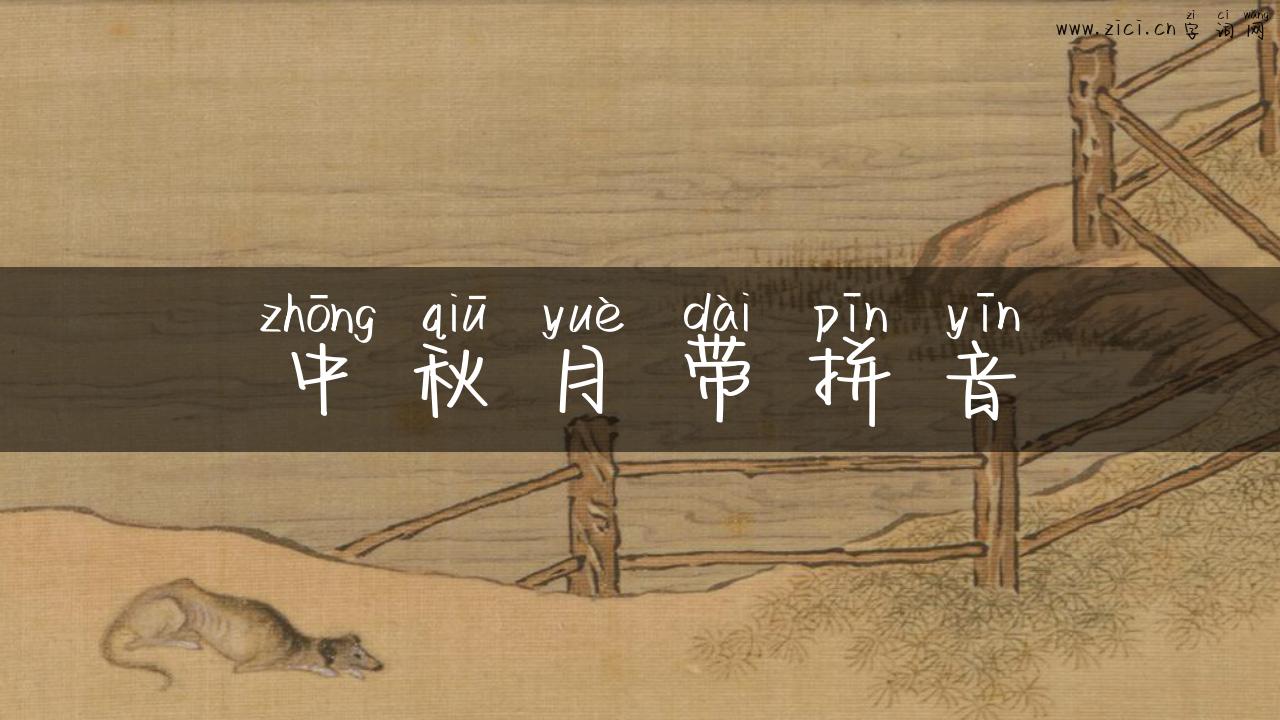 zi ci wang
www.zici.cn 字 词 网
zhōng qiū yuè dài pīn yīn
中 秋 月 带 拼 音